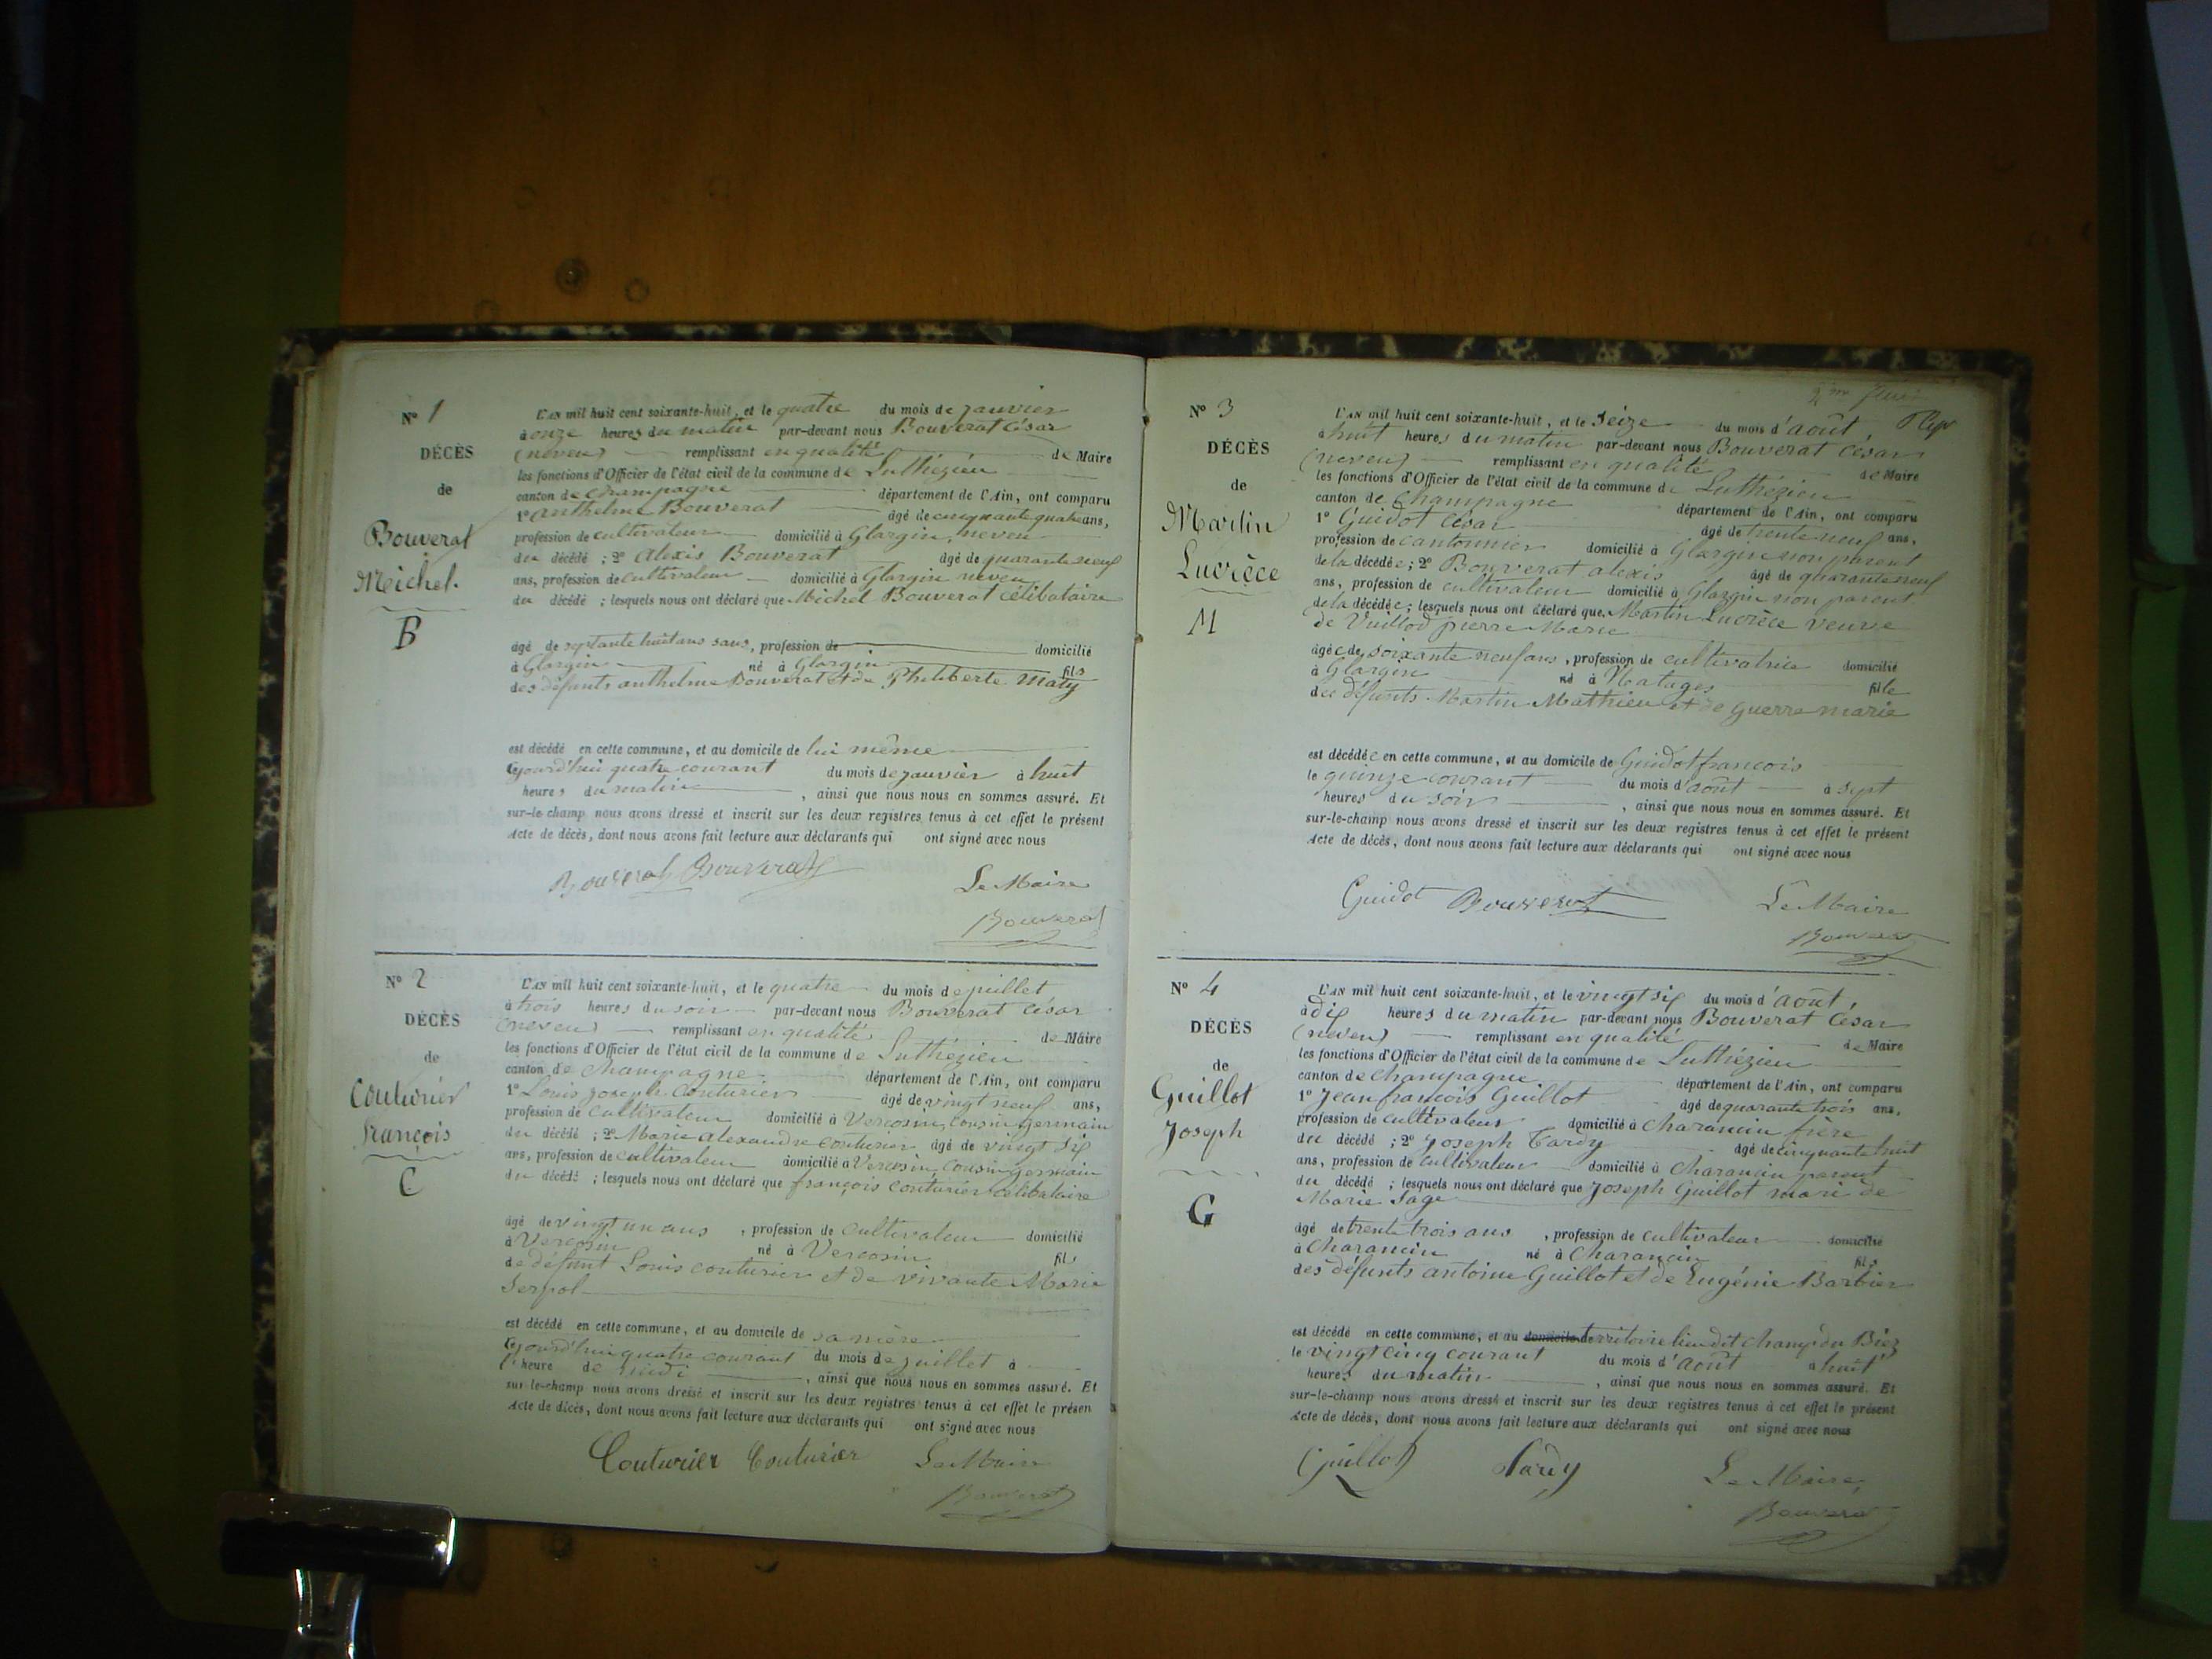 Nº 1
DÉCÈS
de
Bouverat
Michel.
B
L'AN mil huit cent soixante-huit, et le quatre du mois de janvier
à onze heures du matin par-devant nous Bouverat César
(neveu) remplissant en qualité de Maire
les fonctions d'Officier de l'état civil de la commune de Luthézieu
canton de Champagne département de l'Ain, ont comparu
1º Anthelme Bouverat âgé de cinquante quatre ans,
profession de cultivateur domicilié à Glargin, neveu
du décédé ; 2º Alexis Bouverat âgé de quarante neuf
ans, profession de cultivateur domicilié à Glargin neveu
du décédé ; lesquels nous ont déclaré que Michel Bouverat célibataire
âgé de septante huit ans sans, profession de domicilié
à Glargin né à Glargin fils
des défunts anthelme Bouverat et de Philiberte Maty
est décédé en cette commune, et au domicile de lui même
Cejourd'hui quatre courant du mois de janvier à huit
heures du matin , ainsi que nous nous en sommes assuré. Et
sur-le-champ nous avons dressé et inscrit sur les deux registres tenus à cet effet le présent
Acte de décès, dont nous avons fait lecture aux déclarants qui ont signé avec nous
Bouverat Bouverat Le Maire
Bouverat
Nº 2
DÉCÈS
de
Couturier
François
C
L'AN mil huit cent soixante-huit, et le quatre du mois de juillet
à trois heures du soir par-devant nous Bouverat César
(neveu) remplissant en qualité de Maire
les fonctions d'Officier de l'état civil de la commune de Luthézieu
canton de Champagne département de l'Ain, ont comparu
1º Louis joseph Couturier âgé de vingt neuf ans,
profession de cultivateur domicilié à Vercosin, cousin germain
du décédé ; 2º Marie alexandre couturier âgé de vingt six
ans, profession de cultivateur domicilié à Vercosin, cousin germain
du décédé ; lesquels nous ont déclaré que françois couturier célibataire
âgé de vingt un ans , profession de cultivateur domicilié
à Vercosin né à Vercosin fils
de défunt Louis couturier et de vivante Marie
Serpol
est décédé en cette commune, et au domicile de sa mère
Cejourd'hui quatre courant du mois de juillet à
l'heure de midi , ainsi que nous nous en sommes assuré. Et
sur-le-champ nous avons dressé et inscrit sur les deux registres tenus à cet effet le présen
Acte de décès, dont nous avons fait lecture aux déclarants qui ont signé avec nous
Couturier Couturier Le Maire
Bouverat
Nº 3
DÉCÈS
de
Martin
Lucrèce
M
L'AN mil huit cent soixante-huit, et le seize du mois d'août
à huit heures du matin par-devant nous Bouverat César
(neveu) remplissant en qualité de Maire
les fonctions d'Officier de l'état civil de la commune de Luthézieu
canton de Champagne département de l'Ain, ont comparu
1º Guidot César âgé de trente neuf ans,
profession de cantonnier domicilié à Glargin non parent
de la décédée ; 2º Bouverat alexis âgé de quarante neuf
ans, profession de cultivateur domicilié à Glargin non parent
de la décédée ; lesquels nous ont déclaré que Martin Lucrèce veuve
de Vuillod pierre Marie
âgée de soixante neuf ans , profession de cultivatrice domicilié
à Glargin né à Natages file
des défunts Martin Mathieu et de Guerre marie
est décédée en cette commune, et au domicile de Guidot françois
le quinze courant du mois d'août à sept
heures du soir , ainsi que nous nous en sommes assuré. Et
sur-le-champ nous avons dressé et inscrit sur les deux registres tenus à cet effet le présent
Acte de décès, dont nous avons fait lecture aux déclarants qui ont signé avec nous
Guidot Bouverat Le Maire
Bouverat
Nº 4
DÉCÈS
de
Guillot
Joseph
G
L'AN mil huit cent soixante-huit, et le vingt six du mois d'août,
à dix heures du matin par-devant nous Bouverat César
(neveu) remplissant en qualité de Maire
les fonctions d'Officier de l'état civil de la commune de Luthézieu
canton de Champagne département de l'Ain, ont comparu
1º Jean françois Guillot âgé de quarante trois ans,
profession de cultivateur domicilié à Charancin frère
du décédé ; 2º Joseph Tardy âgé de cinquante huit
ans, profession de cultivateur domicilié à Charancin parent
du décédé ; lesquels nous ont déclaré que Joseph Guillot mari de
Marie Sage
âgé de trente trois ans , profession de cultivateur domicilié
à Charancin né à Charancin fils
des défunts antoine Guillot et de Eugénie Barbier
est décédé en cette commune, et au domicile de territoire lieu dit champ du Biez
le vingt cinq courant du mois d'août à huit
heures du matin , ainsi que nous nous en sommes assuré. Et
sur-le-champ nous avons dressé et inscrit sur les deux registres tenus à cet effet le présent
Acte de décès, dont nous avons fait lecture aux déclarants qui ont signé avec nous
Guillot Tardy Le Maire,
Bouverat